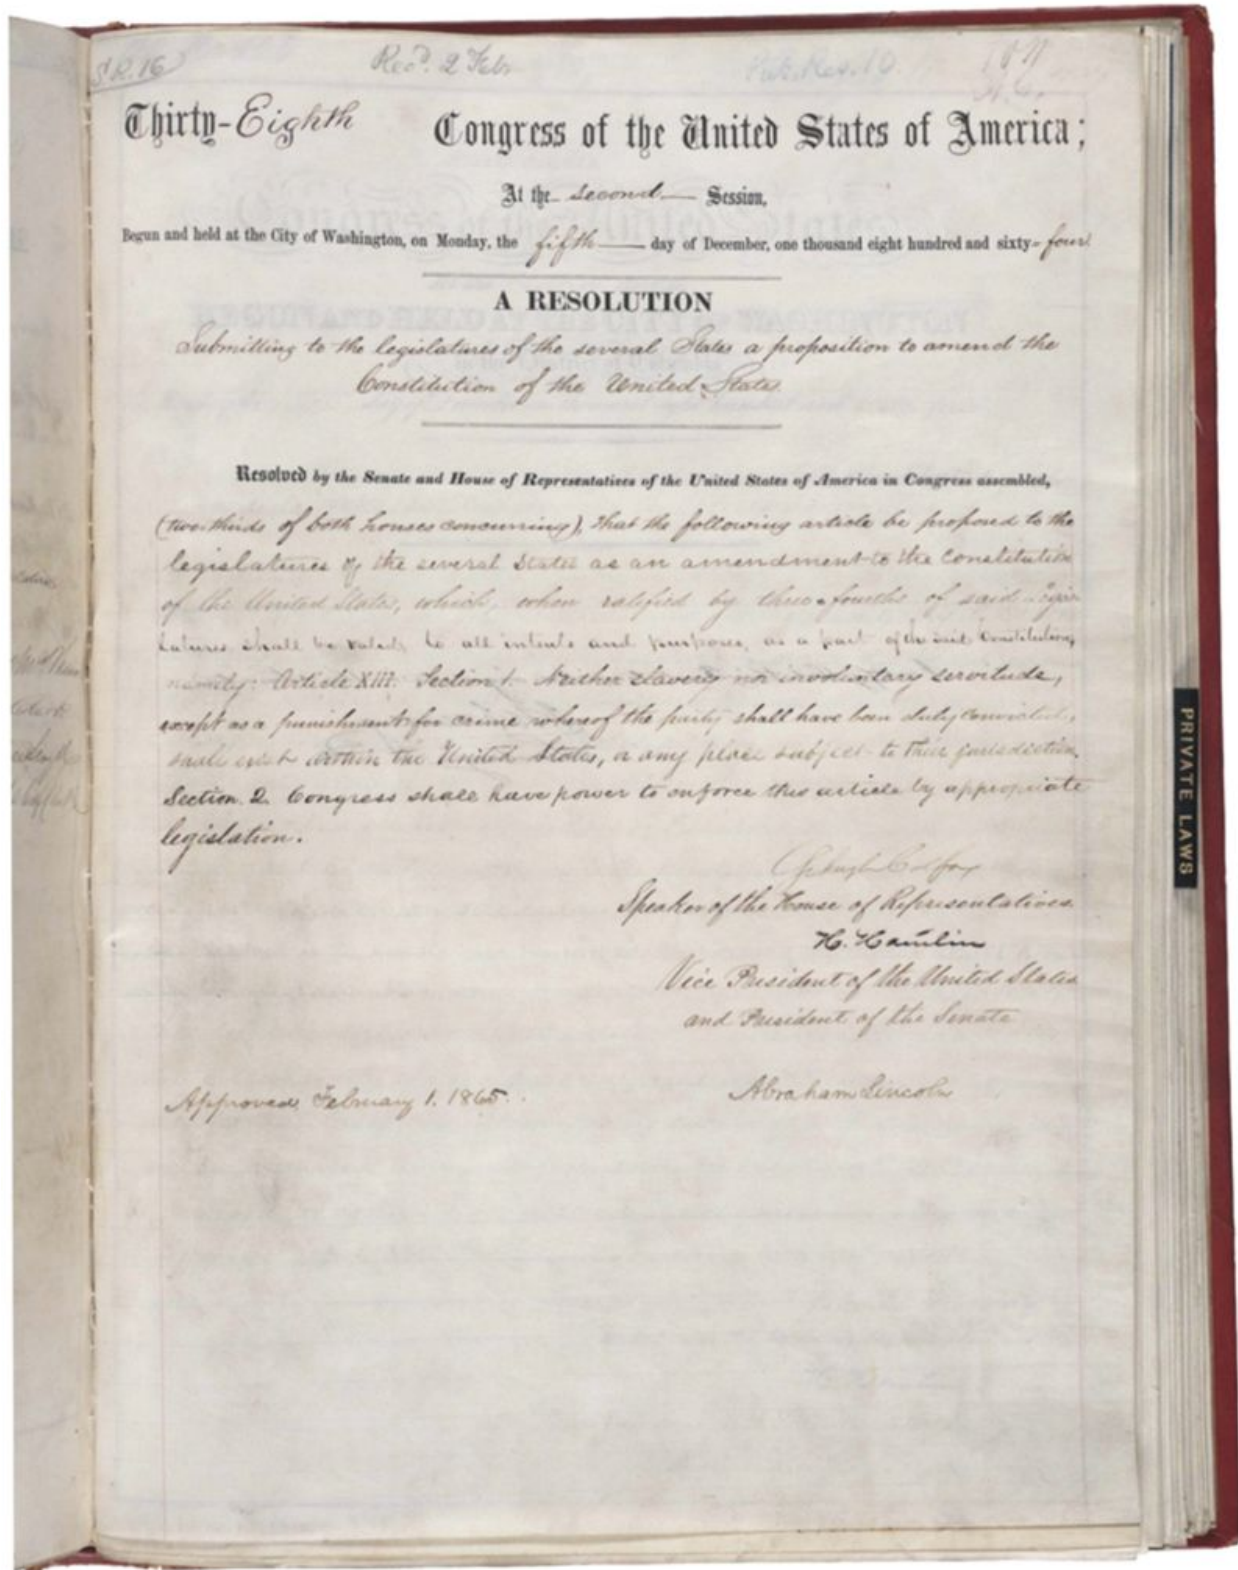 S.R. 16
Rec'd. 2 Feb.
Pub. Res. 10.
Thirty-Eighth Congress of the United States of America;
At the second Session,
Begun and held at the City of Washington, on Monday, the fifth day of December, one thousand eight hundred and sixty-four.
A RESOLUTION
Submitting to the legislatures of the several States a proposition to amend the
Constitution of the United States.
Resolved by the Senate and House of Representatives of the United States of America in Congress assembled,
(two-thirds of both houses concurring), That the following article be proposed to the
legislatures of the several States as an amendment to the Constitution
of the United States, which, when ratified by three-fourths of said Legis-
latures shall be valid, to all intents and purposes, as a part of the said Constitution,
namely: Article XIII. Section 1. Neither slavery nor involuntary servitude,
except as a punishment for crime whereof the party shall have been duly convicted,
shall exist within the United States, or any place subject to their jurisdiction.
Section. 2. Congress shall have power to enforce this article by appropriate
legislation.
Schuyler Colfax
Speaker of the House of Representatives.
H. Hamlin
Vice President of the United States
and President of the Senate
Approved, February 1. 1865.
Abraham Lincoln
PRIVATE LAWS